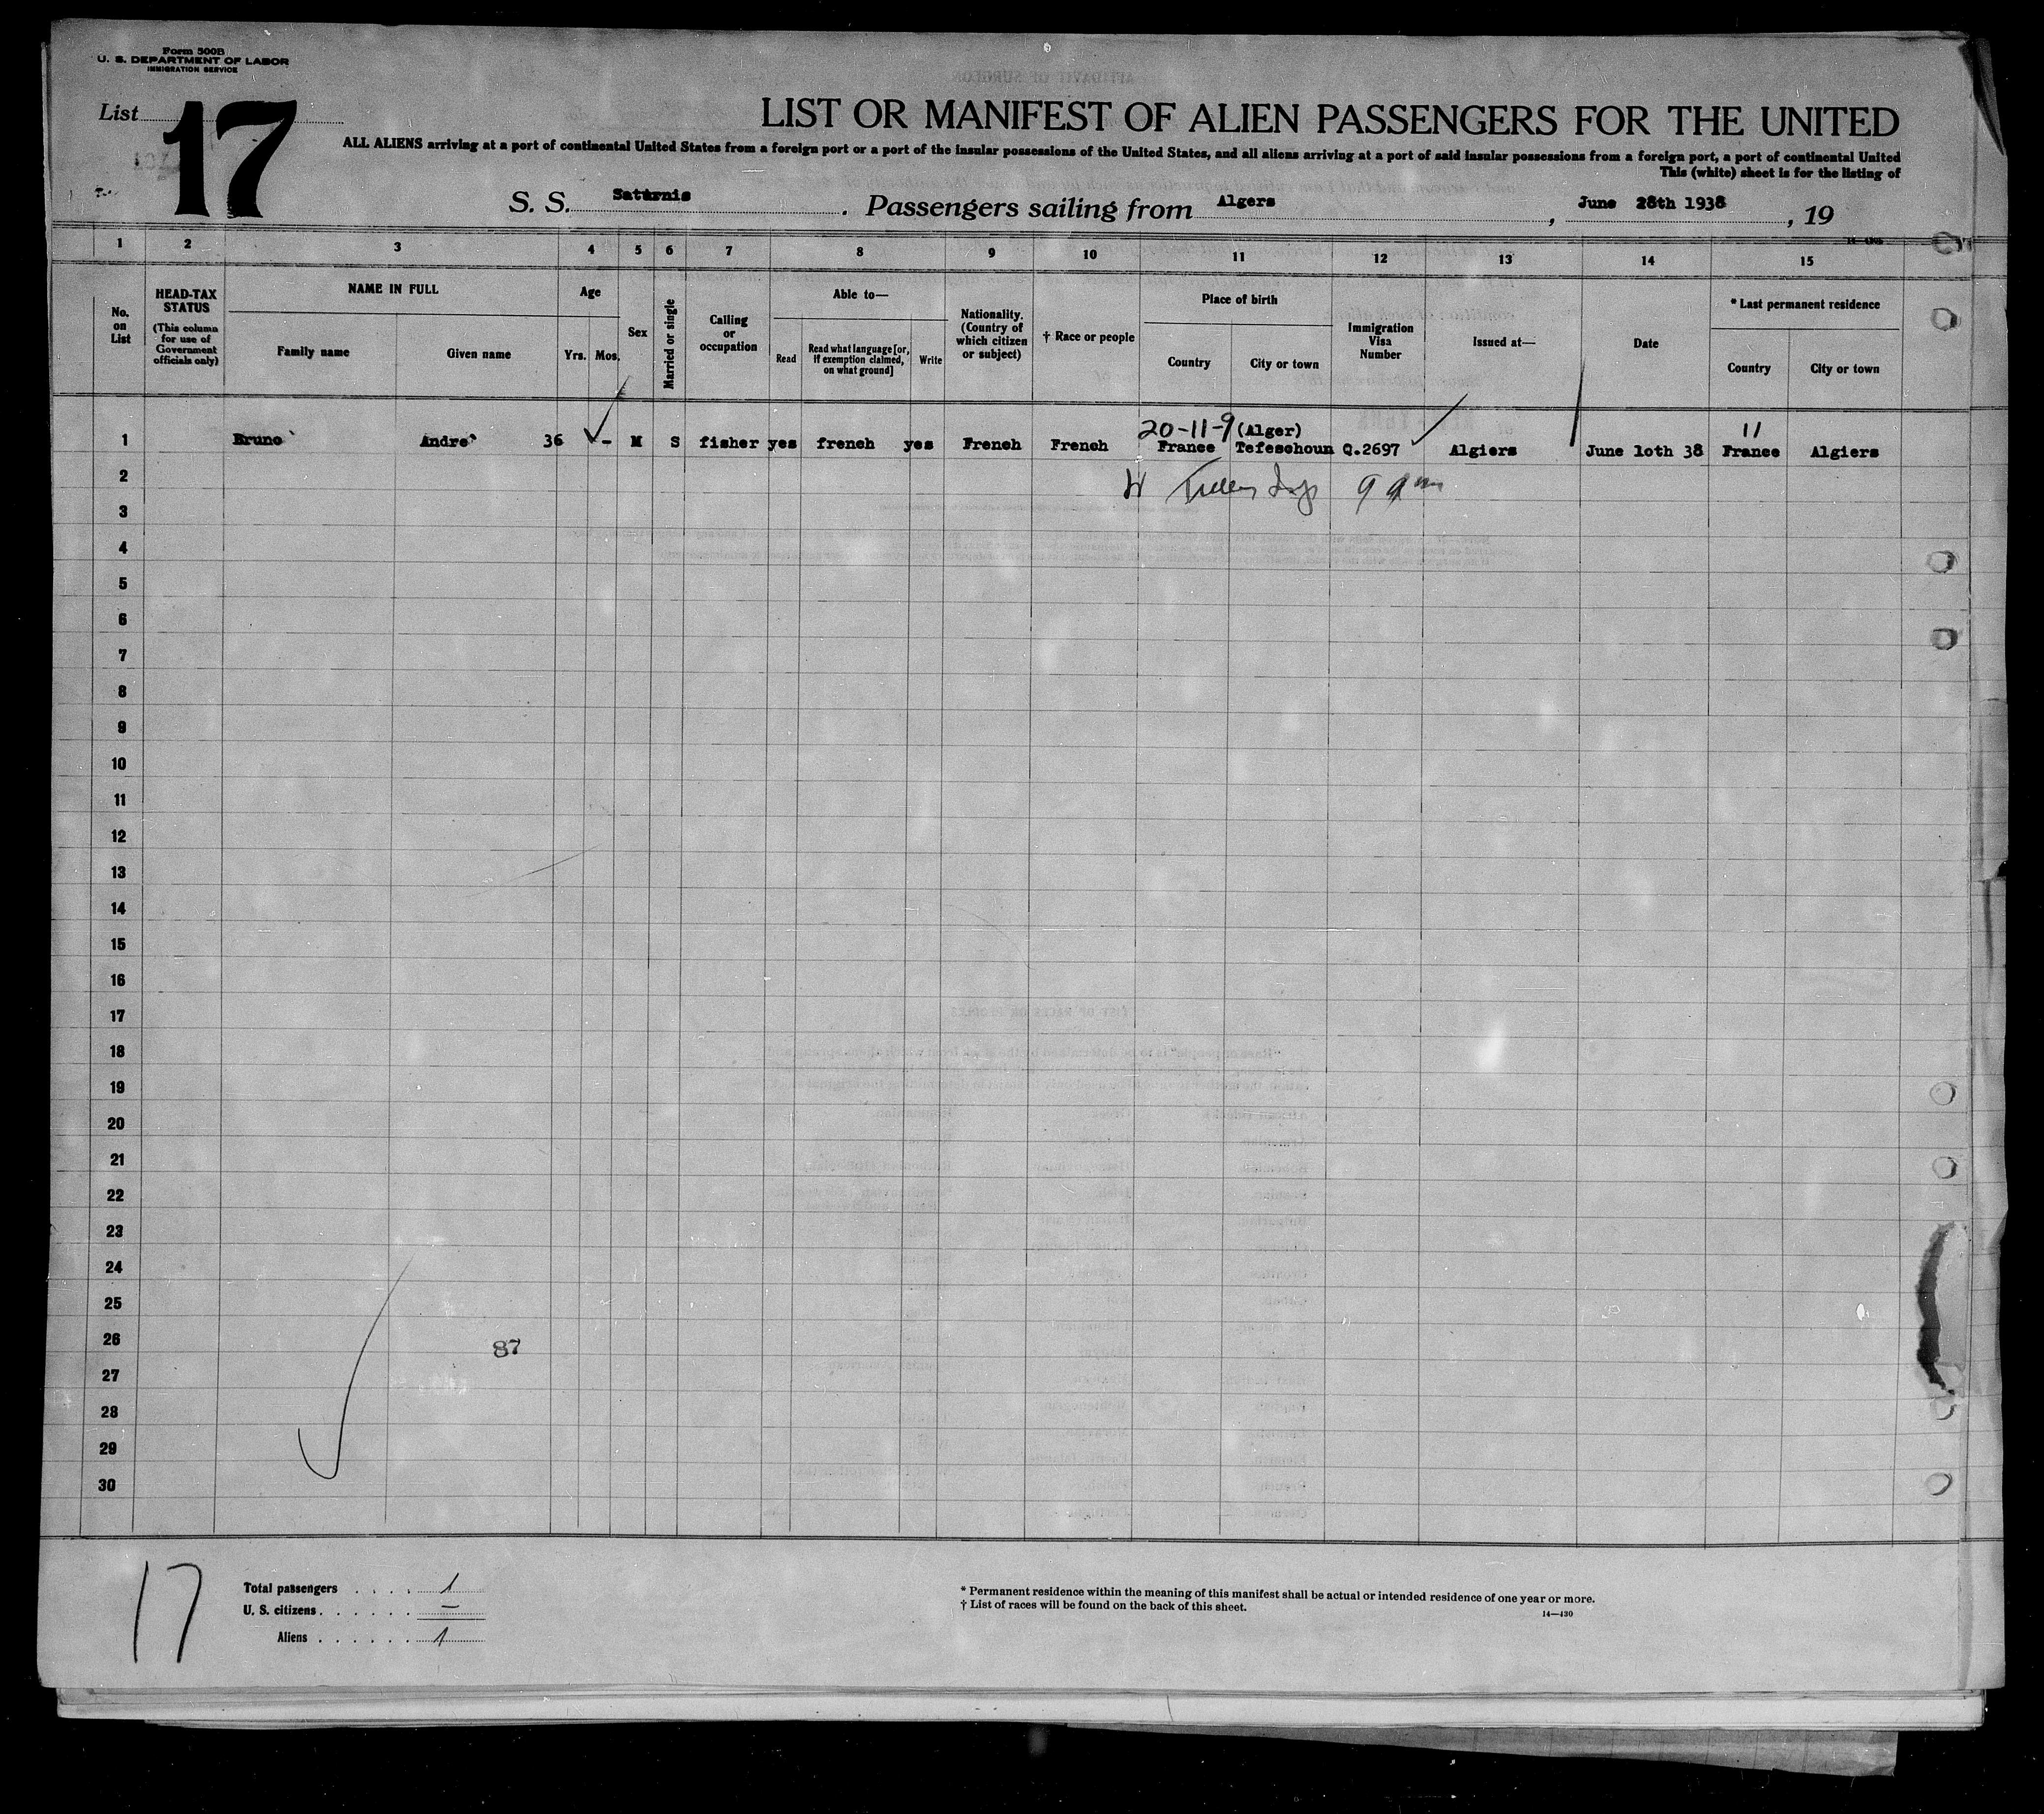 Form 500B
U. S. DEPARTMENT OF LABOR
IMMIGRATION SERVICE
List 17
LIST OR MANIFEST OF ALIEN PASSENGERS FOR THE UNITED
ALL ALIENS arriving at a port of continental United States from a foreign port or a port of the insular possessions of the United States, and all aliens arriving at a port of said insular possessions from a foreign port, a port of continental United
This (white) sheet is for the listing of
S. S. Saturnia. Passengers sailing from Algers, June 28th 1938, 19
1 2 3 4 5 6 7 8 9 10 11 12 13 14 15
No. on List
HEAD-TAX STATUS
(This column for use of Government officials only)
NAME IN FULL
Family name
Given name
Age
Yrs.
Mos.
Sex
Married or single
Calling or occupation
Able to—
Read
Read what language [or, if exemption claimed, on what ground]
Write
Nationality. (Country of which citizen or subject)
† Race or people
Place of birth
Country
City or town
Immigration Visa Number
Issued at—
Date
* Last permanent residence
Country
City or town
20-11-9 (Alger) 11
1 Bruno Andre 36 - M S fisher yes french yes French French France Tefeschoun Q.2697 Algiers June 10th 38 France Algiers
2
3
4
5
6
7
8
9
10
11
12
13
14
15
16
17
18
19
20
21
22
23
24
25
26
87
27
28
29
30
17
Total passengers . . . . 1
U. S. citizens . . . . . . —
Aliens . . . . . . 1
* Permanent residence within the meaning of this manifest shall be actual or intended residence of one year or more.
† List of races will be found on the back of this sheet.
14—430